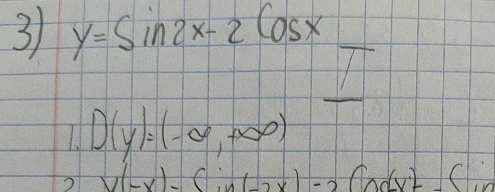 3) y=Sin2x-2Cosx
I
1. D(y)=(-∞,+∞)
2. y(-x)=Sin(-2x)-2Cos(-x)=-Sin